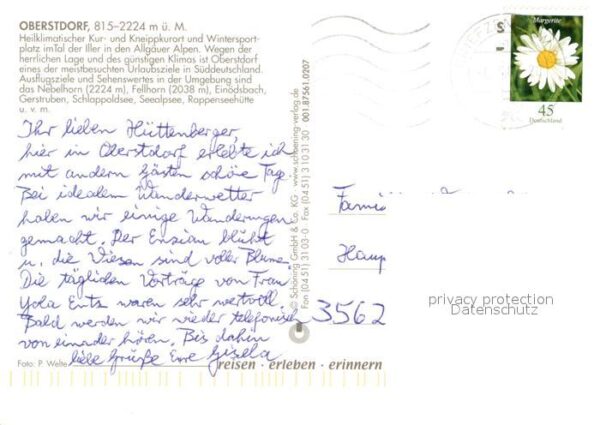 OBERSTDORF, 815–2224 m ü. M.
Heilklimatischer Kur- und Kneippkurort und Wintersport-
platz imTal der Iller in den Allgäuer Alpen. Wegen der
herrlichen Lage und des günstigen Klimas ist Oberstdorf
eines der meistbesuchten Urlaubsziele in Süddeutschland.
Ausflugsziele und Sehenswertes in der Umgebung sind
das Nebelhorn (2224 m), Fellhorn (2038 m), Einödsbach,
Gerstruben, Schlappoldsee, Seealpsee, Rappenseehütte
u. v. m.
Ihr lieben Hüttenberger,
hier in Oberstdorf erlebte ich
mit andern Gästen schöne Tage
Bei idealem Wanderwetter
haben wir einige Wanderungen
gemacht. Der Enzian blüht
u. die Wiesen sind voller Blumen
Die täglichen Vorträge von Frau
Yola Entz waren sehr wertvoll
Bald werden wir wieder telefonisch
von einander hören. Bis dahin
liebe Grüße Eure Gisela
Foto: P. Welte
reisen · erleben · erinnern
© Schöning GmbH & Co. KG · www.schoening-verlag.de
Fon (04 51) 31 03-0 · Fax (04 51) 3 10 31 30 001.87561.0207
Margerite
45
Deutschland
Fami
Haup
35625
privacy protection
Datenschutz